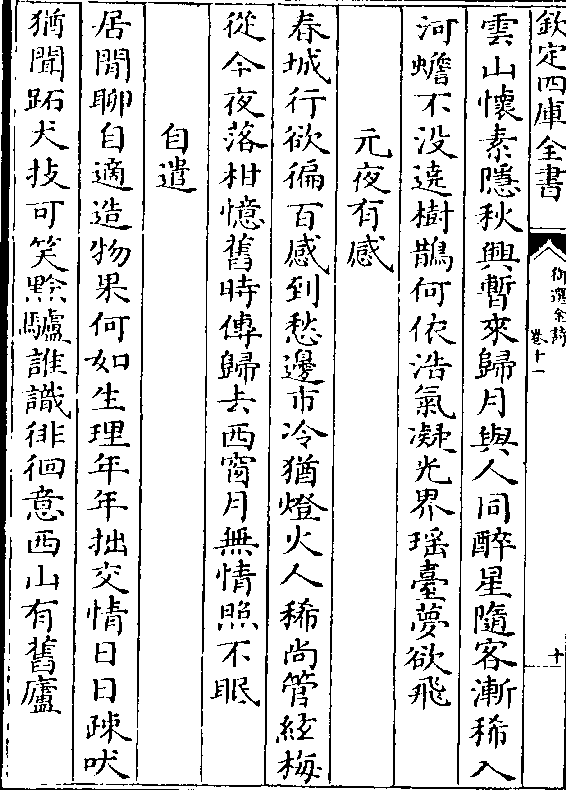 欽定四庫全書
御選金詩
卷十一
十
雲山懷素隱秋興暫來歸月與人同醉星隨客漸稀入
河蟾不没遶樹鵲何依浩氣凝光界瑶臺夢欲飛
元夜有感
春城行欲徧百感到愁邊市冷猶燈火人稀尚管絃梅
從今夜落柑憶舊時傳歸去西窗月無情照不眠
自遣
居閒聊自適造物果何如生理年年拙交情日日疎吠
猶聞跖犬技可笑黔驢誰識徘徊意西山有舊廬